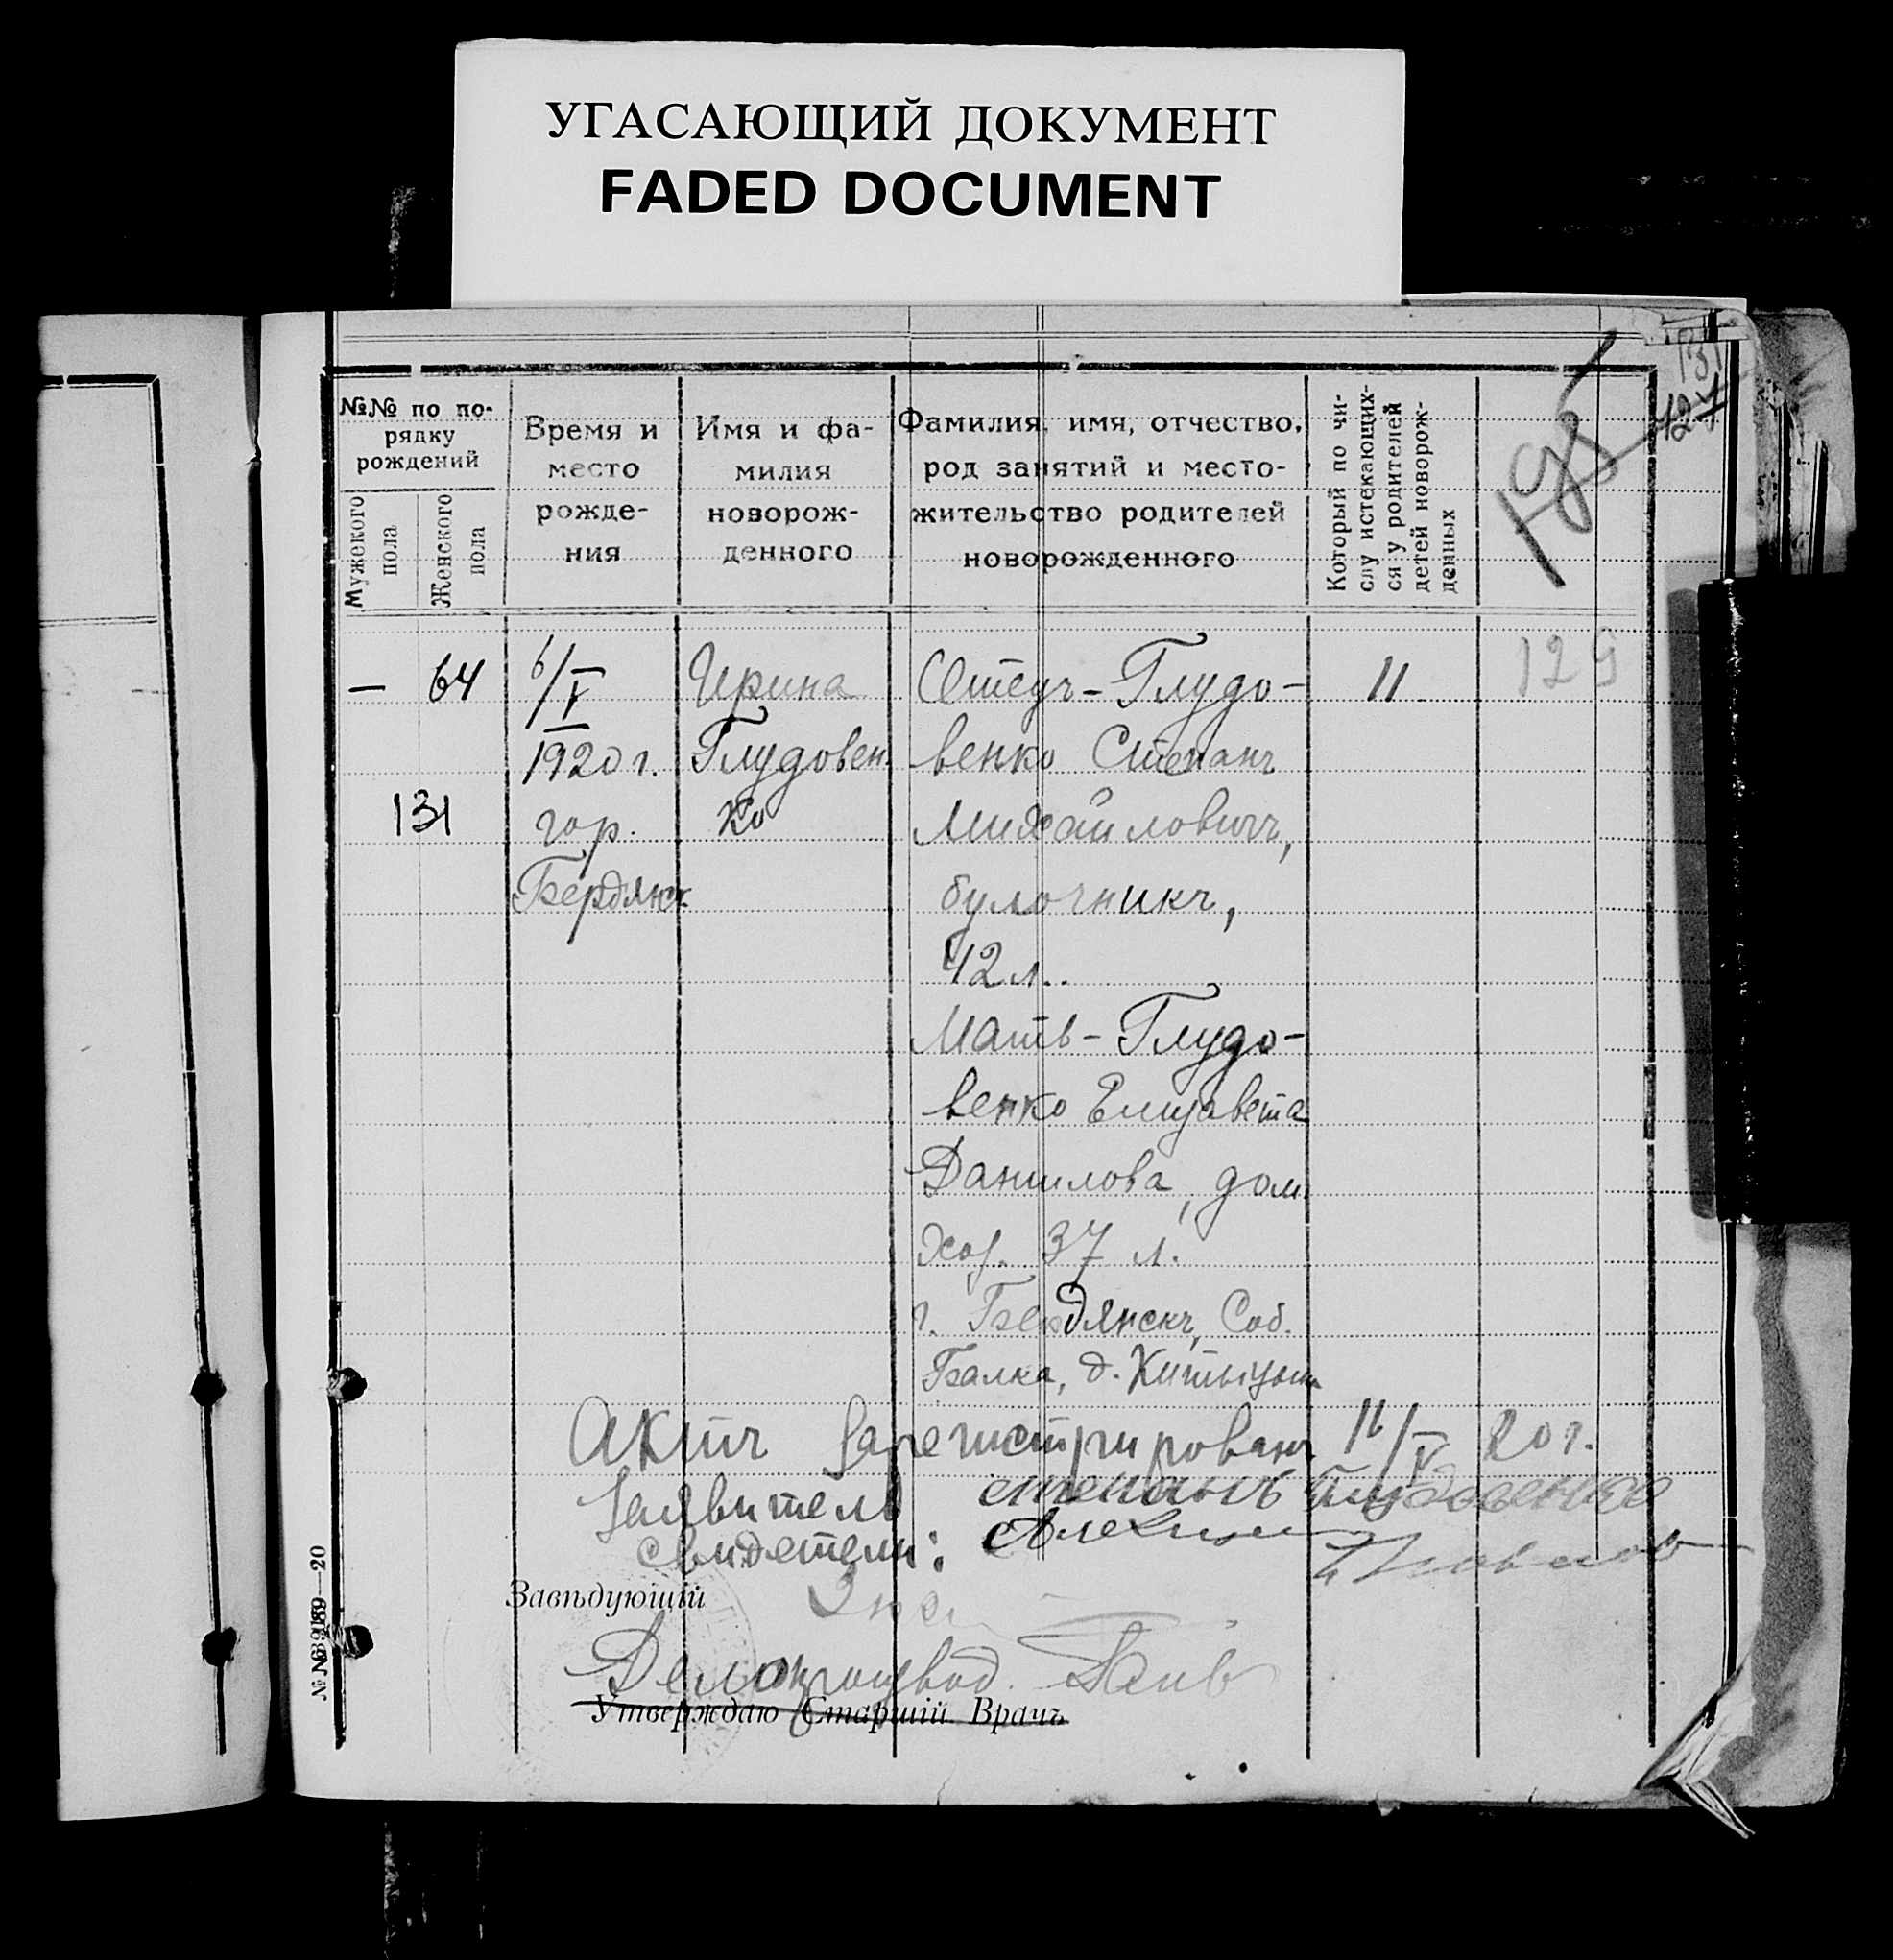 УГАСАЮЩИЙ ДОКУМЕНТ
FADED DOCUMENT
131
127
195
№№ по по-
рядку
рождений
Мужского
пола
Женского
пола
Время и
место
рожде-
ния
Имя и фа-
милия
новорож-
денного
Фамилия, имя, отчество,
род занятий и место-
жительство родителей
новорожденного
Который по чи-
слу истекающих-
ся у родителей
детей новорож-
денных
129
— 64
131
6/V
1920 г.
гор.
Бердянск
Ирина
Глудовен
ко
Отецъ - Глудо-
венко Степанъ
Михайловичъ,
булочникъ,
42 л.
Мать - Глудо-
венко Елизавета
Данилова, дом.
хоз. 37 л.
г. Бердянскъ, Соб.
Балка, д.
11
Актъ зарегистрированъ 16/V 20 г.
Заявитель степанъ Глудовенко
Свидетели:
Завѣдующій
Делопроизвод.
Утверждаю Старшій Врачъ